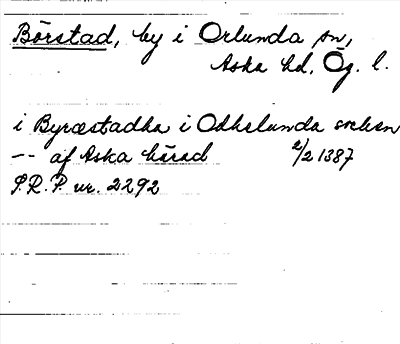 Börstad, by i Orlunda sn,
Aska hd, Ög. l.
i Byræstadha i Odhslunda sochn
-- af Aska härad 2/2 1387
S.R.P. nr. 2292